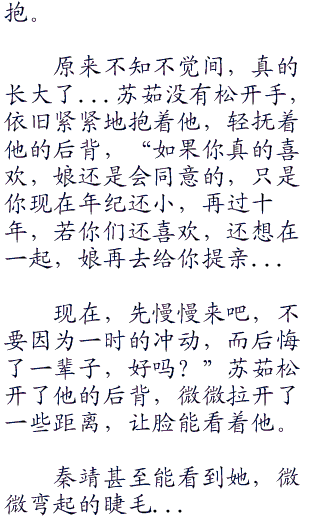 抱。
原来不知不觉间，真的
长大了...苏茹没有松开手，
依旧紧紧地抱着他，轻抚着
他的后背，“如果你真的喜
欢，娘还是会同意的，只是
你现在年纪还小，再过十
年，若你们还喜欢，还想在
一起，娘再去给你提亲...
现在，先慢慢来吧，不
要因为一时的冲动，而后悔
了一辈子，好吗？”苏茹松
开了他的后背，微微拉开了
一些距离，让脸能看着他。
秦靖甚至能看到她，微
微弯起的睫毛...